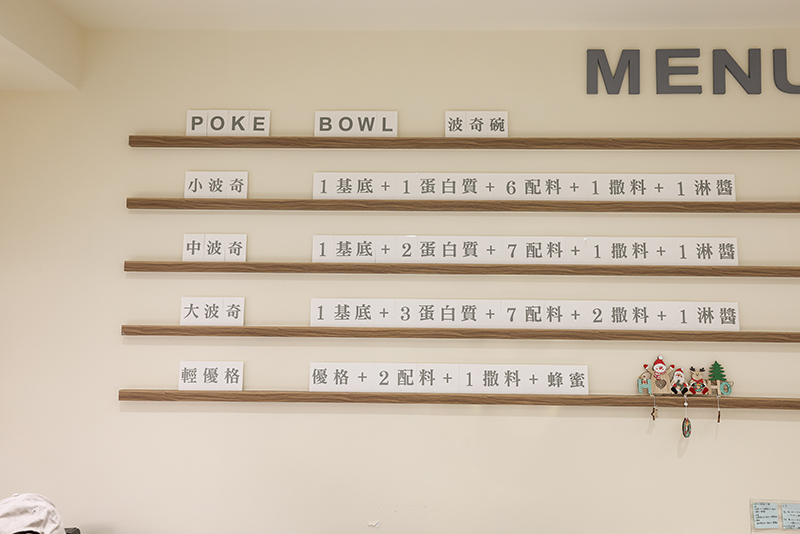 MENU
POKE BOWL 波奇碗
小波奇 1基底+1蛋白質+6配料+1撒料+1淋醬
中波奇 1基底+2蛋白質+7配料+1撒料+1淋醬
大波奇 1基底+3蛋白質+7配料+2撒料+1淋醬
輕優格 優格+2配料+1撒料+蜂蜜